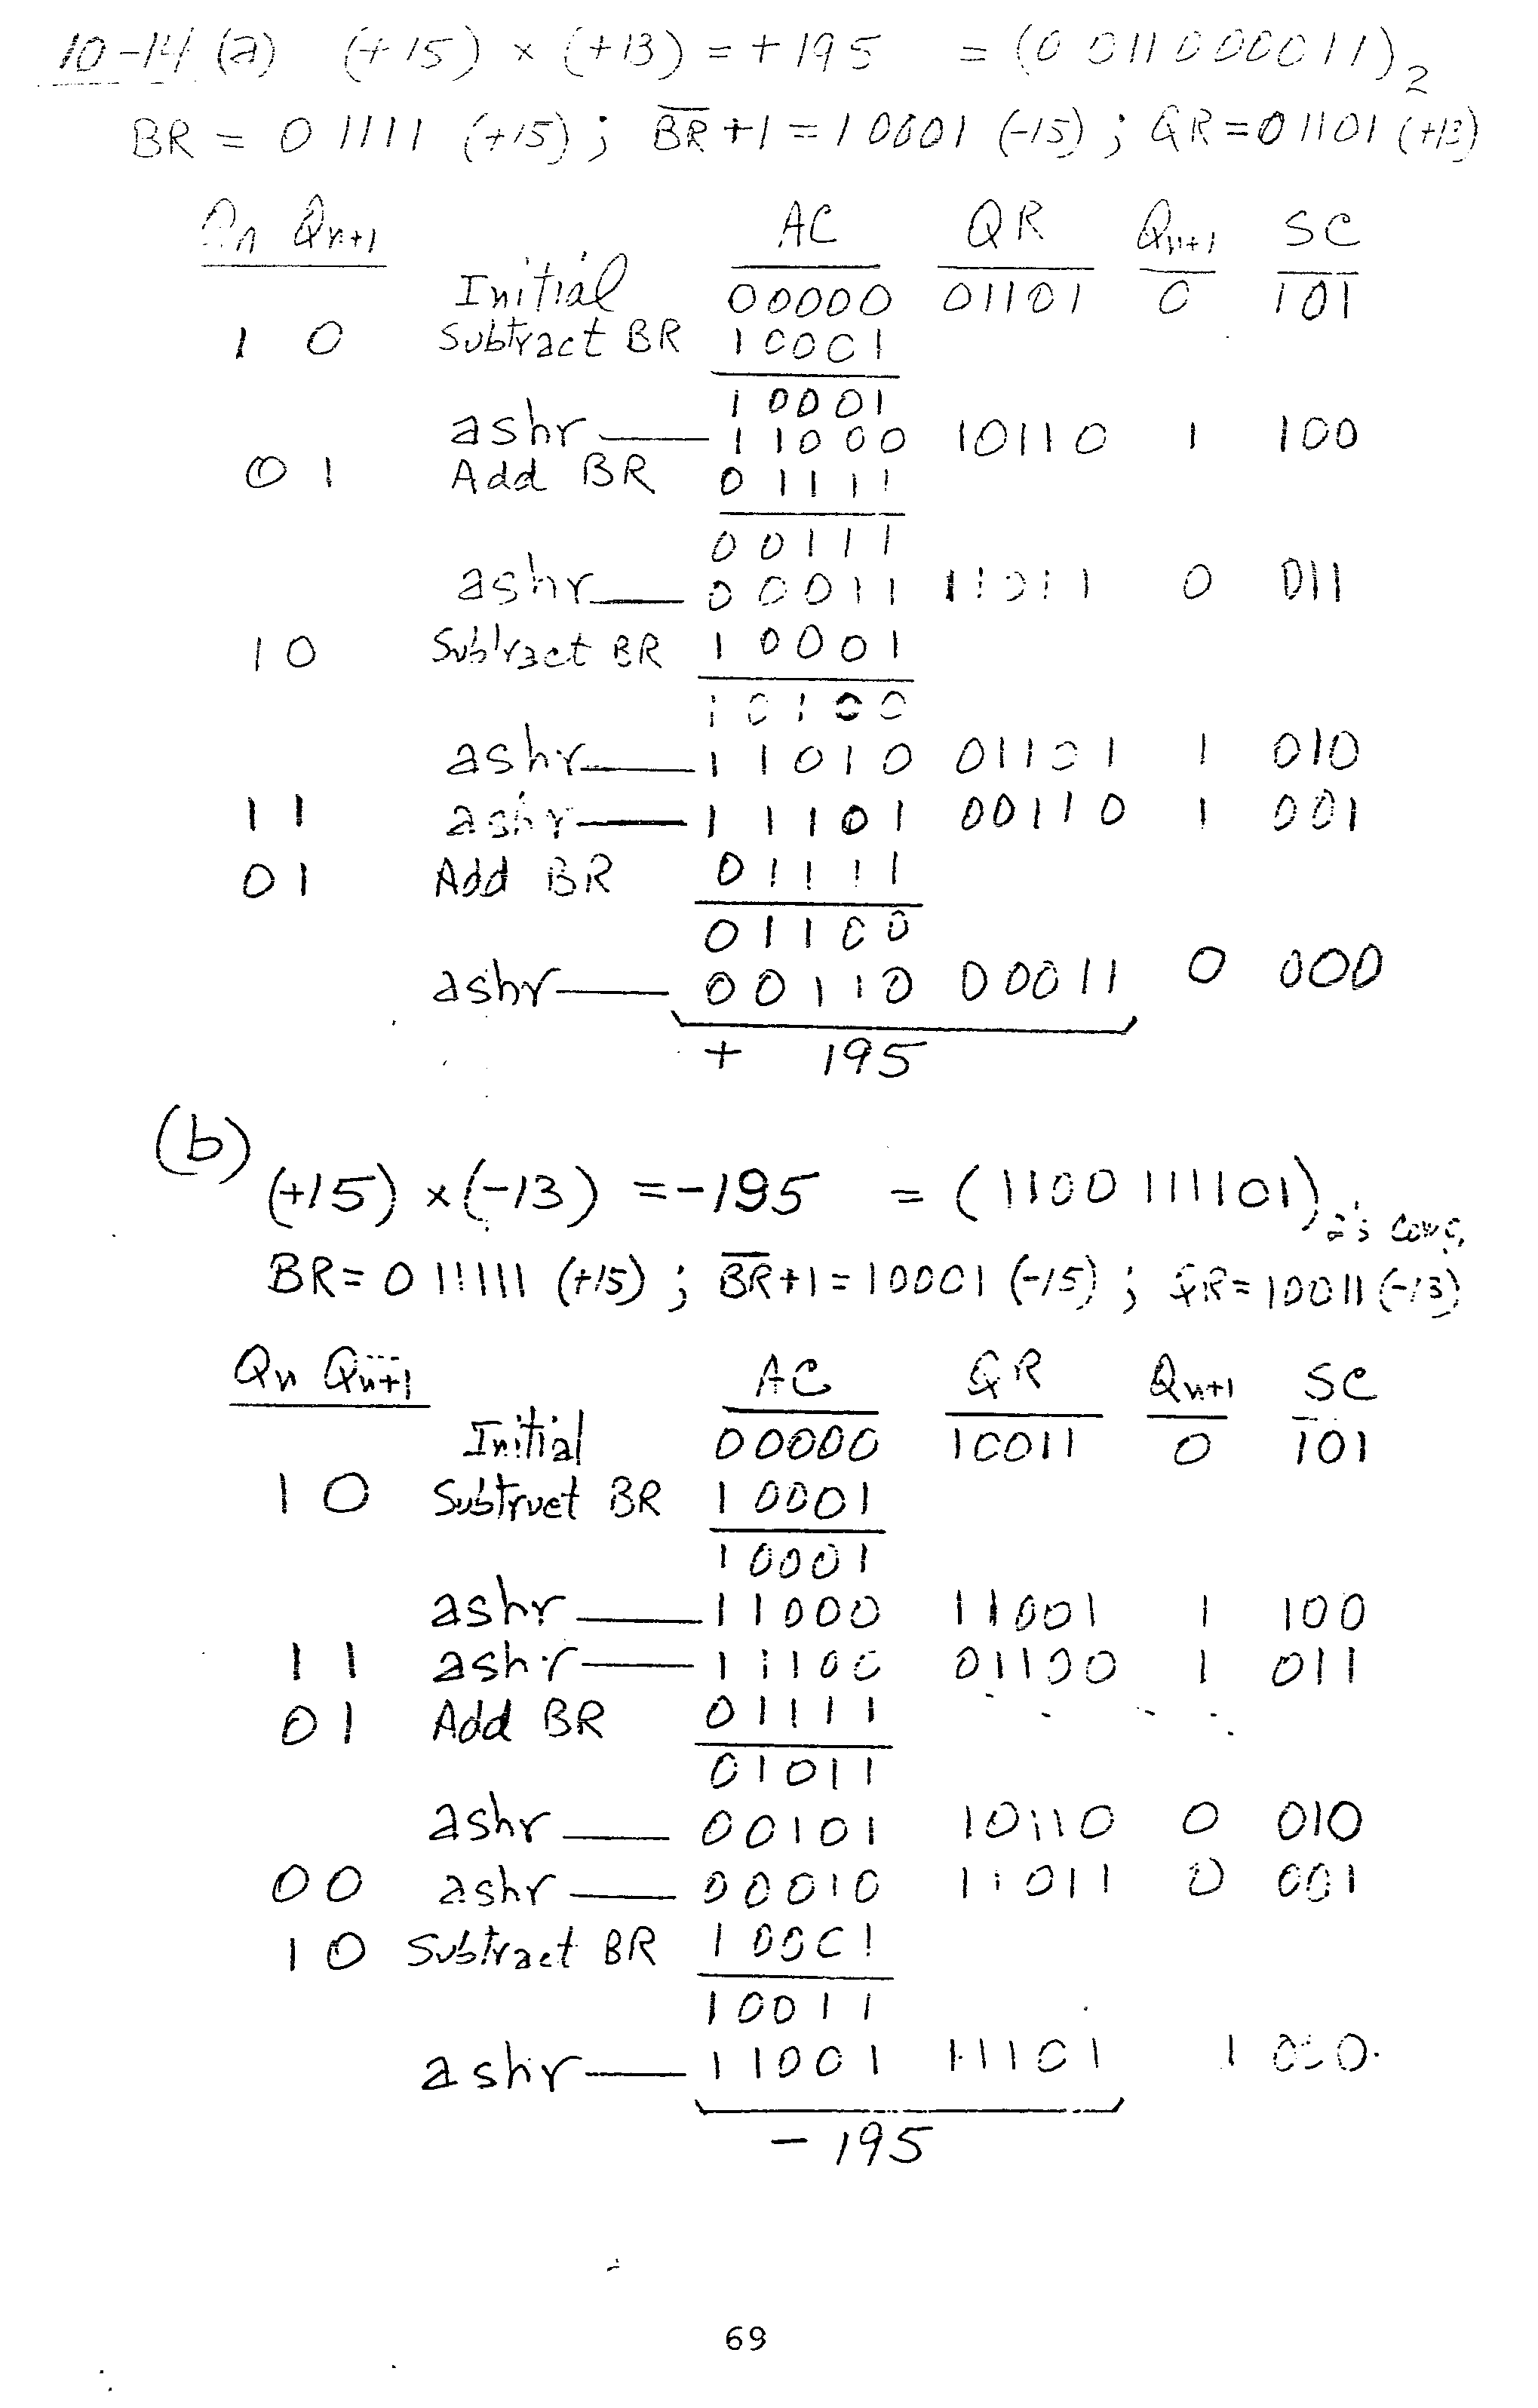 10-14 (a) (+15) × (+13) = +195 = (0 011000011)2
BR = 01111 (+15); B̅R̅+1 = 10001 (-15); QR = 01101 (+13)
Qn Qn+1 AC QR Qn+1 SC
Initial 00000 01101 0 101
1 0 Subtract BR 10001
10001
ashr 11000 10110 1 100
0 1 Add BR 01111
00111
ashr 00011 11011 0 011
1 0 Subtract BR 10001
10100
ashr 11010 01101 1 010
1 1 ashr 11101 00110 1 001
0 1 Add BR 01111
01100
ashr 00110 00011 0 000
+ 195
(b)
(+15) × (-13) = -195 = (1100 111101)2's comp.
BR = 011111 (+15); B̅R̅+1 = 10001 (-15); QR = 10011 (-13)
Qn Qn+1 AC QR Qn+1 SC
Initial 00000 10011 0 101
1 0 Subtruct BR 10001
10001
ashr 11000 11001 1 100
1 1 ashr 11100 01100 1 011
0 1 Add BR 01111
01011
ashr 00101 10110 0 010
0 0 ashr 00010 11011 0 001
1 0 Subtract BR 10001
10011
ashr 11001 11101 1 000
- 195
69